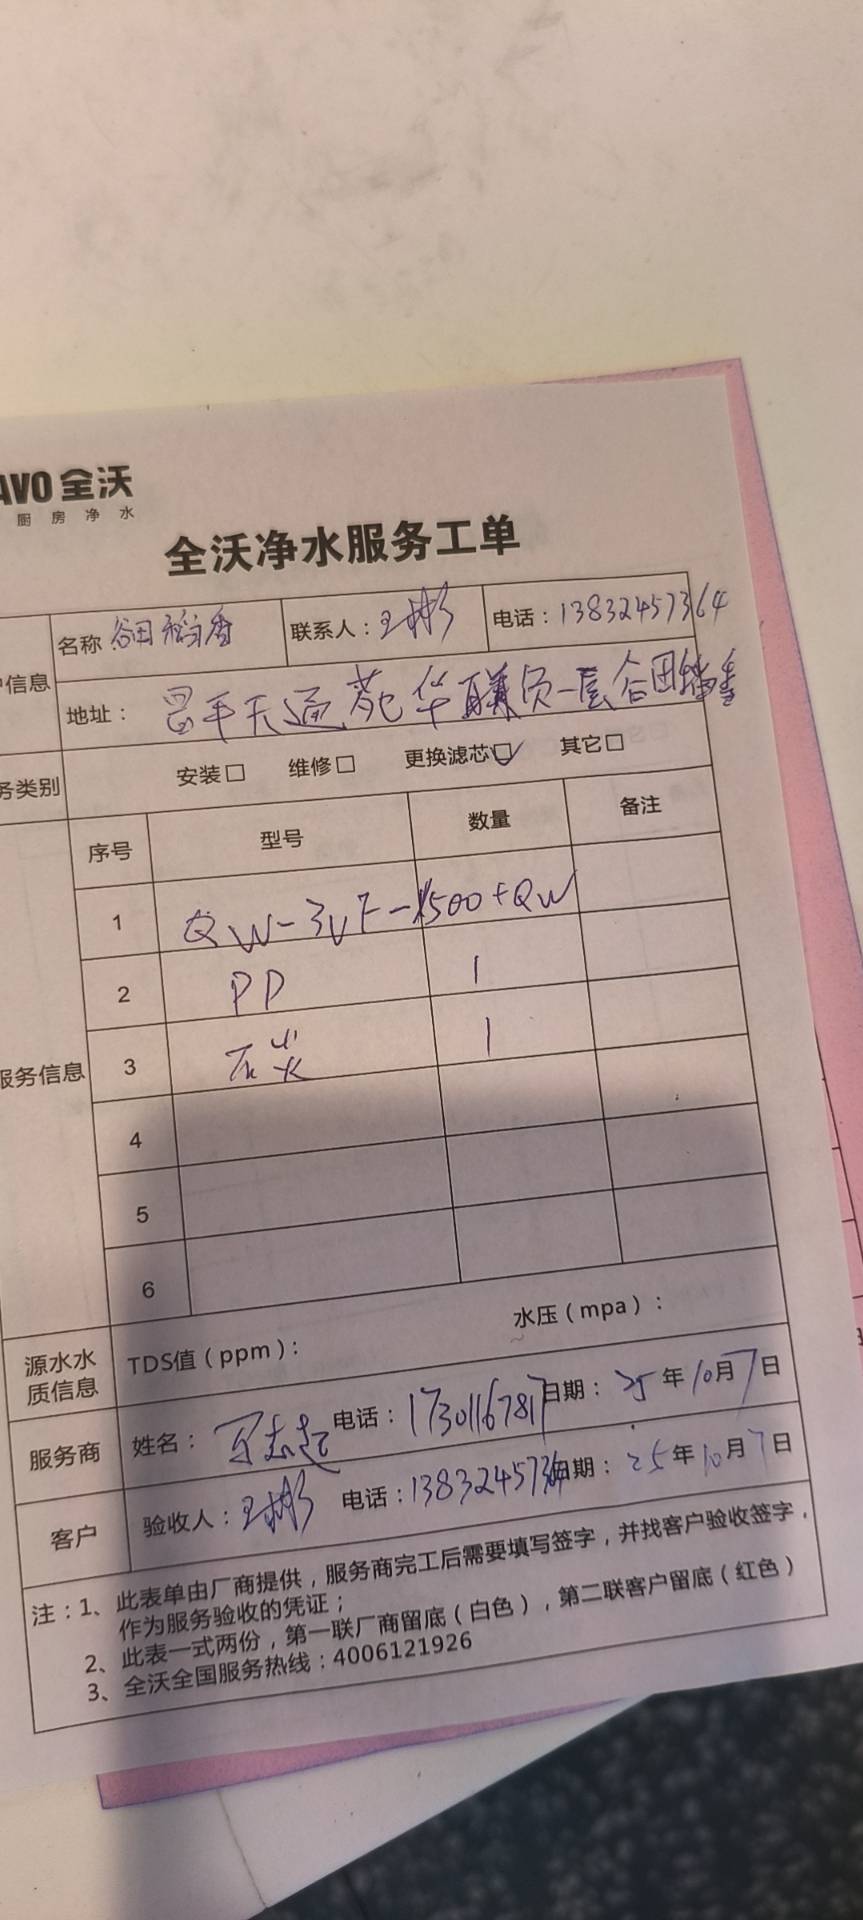 AVO 全沃
厨房净水
全沃净水服务工单
户信息 名称 谷田稻香 联系人：王彬 电话：13832457364
地址：昌平天通苑华联负一层谷田稻香
务类别 安装□ 维修□ 更换滤芯☑ 其它□
服务信息 序号 型号 数量 备注
1 QW-3VF-1500+QW
2 PP 1
3 石炭 1
4
5
6
源水水质信息 TDS值（ppm）： 水压（mpa）：
服务商 姓名： 志起 电话：17301167817 日期：25年10月7日
客户 验收人：王彬 电话：13832457364 日期：25年10月7日
注：1、此表单由厂商提供，服务商完工后需要填写签字，并找客户验收签字，
作为服务验收的凭证；
2、此表一式两份，第一联厂商留底（白色），第二联客户留底（红色）
3、全沃全国服务热线：4006121926